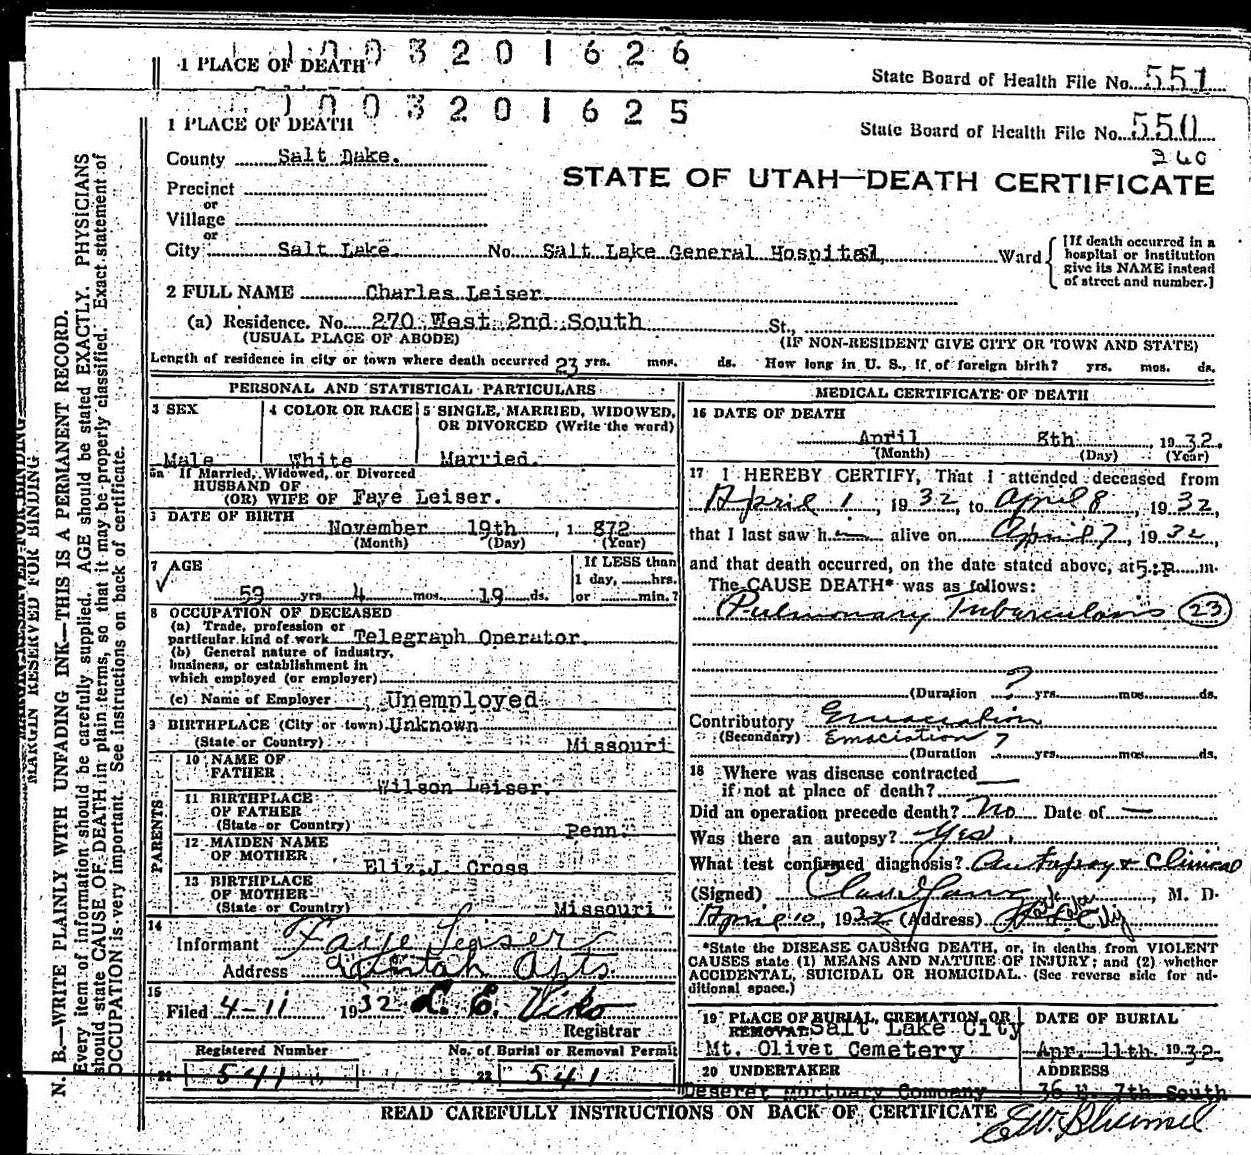 1 0 0 3 2 0 1 6 2 6
1 PLACE OF DEATH
State Board of Health File No. 551
1 0 0 3 2 0 1 6 2 5
1 PLACE OF DEATH
State Board of Health File No. 550
260
County Salt Dake.
STATE OF UTAH—DEATH CERTIFICATE
Precinct
or
Village
or
City Salt Lake No. Salt Lake General Hospital, Ward
[If death occurred in a
hospital or institution
give its NAME instead
of street and number.]
2 FULL NAME Charles Leiser
(a) Residence. No. 270 West 2nd South St.,
(USUAL PLACE OF ABODE) (IF NON-RESIDENT GIVE CITY OR TOWN AND STATE)
Length of residence in city or town where death occurred 23 yrs. mos. ds. How long in U. S., if of foreign birth? yrs. mos. ds.
PERSONAL AND STATISTICAL PARTICULARS
3 SEX
Male
4 COLOR OR RACE
White
5 SINGLE, MARRIED, WIDOWED,
OR DIVORCED (Write the word)
Married.
5a If Married, Widowed, or Divorced
HUSBAND OF
(OR) WIFE OF Faye Leiser.
DATE OF BIRTH
November 19th, 1872
(Month) (Day) (Year)
7 AGE
59 yrs. 4 mos. 19 ds.
If LESS than
1 day, hrs.
or min.?
8 OCCUPATION OF DECEASED
(a) Trade, profession or
particular kind of work Telegraph Operator.
(b) General nature of industry,
business, or establishment in
which employed (or employer)
(c) Name of Employer Unemployed
9 BIRTHPLACE (City or town) Unknown
(State or Country) Missouri
PARENTS
10 NAME OF
FATHER Wilson Leiser.
11 BIRTHPLACE
OF FATHER
(State or Country) Penn.
12 MAIDEN NAME
OF MOTHER Eliz.J. Gross
13 BIRTHPLACE
OF MOTHER
(State or Country) Missouri
14
Informant Faye Leiser
Address Uintah Apts
15
Filed 4-11 1932 L. E. Viko
Registrar
Registered Number No. of Burial or Removal Permit
21 541 22 541
MEDICAL CERTIFICATE OF DEATH
16 DATE OF DEATH
April 8th, 1932.
(Month) (Day) (Year)
17 I HEREBY CERTIFY, That I attended deceased from
April 1, 1932, to April 8, 1932,
that I last saw h alive on April 7, 1932,
and that death occurred, on the date stated above, at 5:P m.
The CAUSE DEATH* was as follows:
Pulmonary Tuberculosis 23
(Duration ? yrs. mos. ds.
Contributory Emaciation
(Secondary) Emaciation ?
(Duration yrs. mos. ds.
18 Where was disease contracted
if not at place of death?
Did an operation precede death? No Date of —
Was there an autopsy? Yes
What test confirmed diagnosis? Autopsy & Clinical
(Signed) M. D.
April 10, 1932 (Address) Salt Lake City
*State the DISEASE CAUSING DEATH, or, in deaths from VIOLENT
CAUSES state (1) MEANS AND NATURE OF INJURY; and (2) whether
ACCIDENTAL, SUICIDAL OR HOMICIDAL. (See reverse side for ad-
ditional space.)
19 PLACE OF BURIAL, CREMATION, OR
REMOVAL Salt Lake City
Mt. Olivet Cemetery
DATE OF BURIAL
Apr. 11th. 1932.
20 UNDERTAKER
Deseret Mortuary Company
ADDRESS
36 E. 7th South
READ CAREFULLY INSTRUCTIONS ON BACK OF CERTIFICATE
MARGIN RESERVED FOR BINDING
MARGIN RESERVED FOR BINDING
N. B.—WRITE PLAINLY WITH UNFADING INK—THIS IS A PERMANENT RECORD.
Every item of information should be carefully supplied. AGE should be stated EXACTLY. PHYSICIANS
should state CAUSE OF DEATH in plain terms, so that it may be properly classified. Exact statement of
OCCUPATION is very important. See instructions on back of certificate.